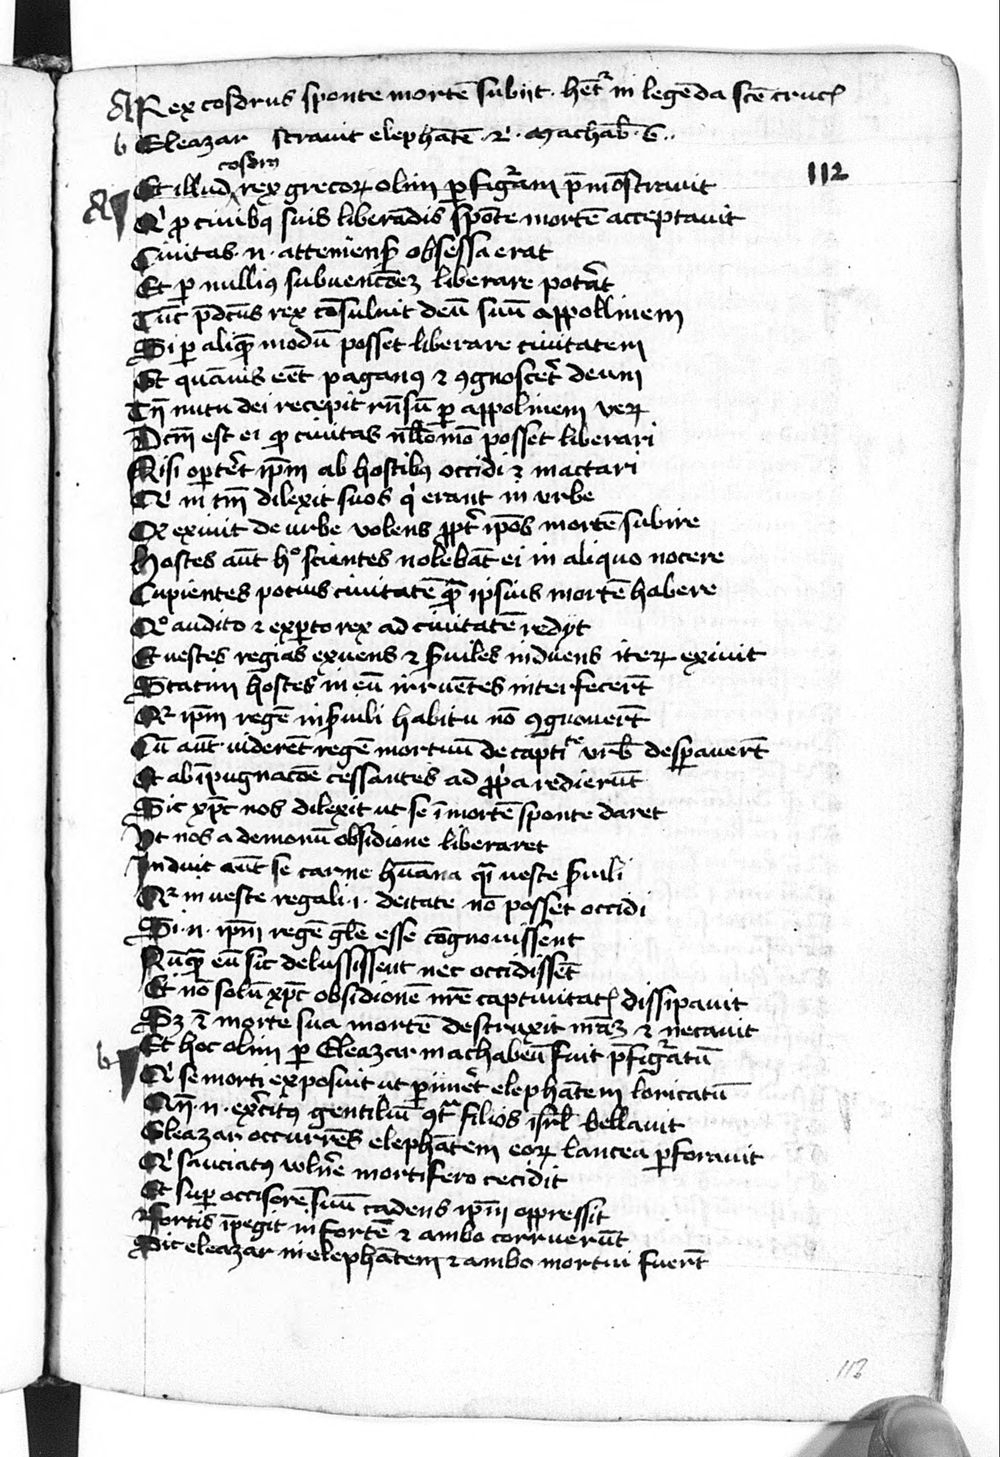 A Rex cosdrus sponte mortē subijt . het᷑ in legēda scē cruc
b Eleazar stravit elephātē . 2 . Machab 6 .
cosdrū
112
A Et illud rex grecoꝝ olim p figᵃm p̄mōstravit
Qi ꝓ civibꝰ suis liberādis spōte mortē acceptavit
Civitas . n . atteniens obsessa erat
Et p nulliꝰ subvencōeꝫ liberare potat
Tūc p̄dcūs rex cōsuluit deū suū appollinem
Si p aliqꝫ modū posset liberare civitatem
Et quāvis eēt paganꝰ ⁊ ꝯgnoscet deum
Tn̄ nutu dei recepit rn̄sū p appolinem veꝝ
Dcm̄ est ei ꝙ civitas nllōmō posset liberari
Nisi optēt ip̄m ab hostibꝰ occidi ⁊ mactari
Qi in tm̄ dilexit suos qi erant in urbe
Qꝛ exivit de urbe volens ꝓpt ip̄os mortē subire
Hostes aūt hº scientes nolebāt ei in aliquo nocere
Cupientes potius civitatē qᵃ̄ ipsius mortē habere
Qº audito ⁊ expto rex ad civitatē redijt
Et vestes regias exuens ⁊ s̄viles induens iteꝝ exivit
Statim hostes in eū irruētes interfecert̄
Qꝛ ip̄m regē in s̄vili habitu nō ꝯgnovert̄
Cū aūt viderēt regē mortuū de captite urb despavert̄
Et ab īpugnacōe cessantes ad ꝓpa redierūt
Sic xp̄c nos dilexit ut se ī mortē sponte daret
Ut nos a demonū obsidione liberaret
Induit aūt se carne hūana qᵃi veste s̄vili
Qꝛ in veste regali . i . deitate nō posset occidi
Si . n . ip̄m regē gl̄e esse cōgnovissent
Nūqᵃ̄ eū sic delusissent nec occidissēt
Et nō solū xp̄c obsidionē nr̄e captivitat dissipavit
Sꝫ ⁊ morte sua mortē destruxit nr̄aꝫ ⁊ necavit
b Et hoc olim p Eleazar machabeū fuit p̄figᵃtū
Qi se morti exposuit ut pimet elephātem loricatū
Qn̄ . n . exc̄itꝰ gentiliū ꝯtᵃ filios isrl̄ bellavit
Eleazar occurrēs elephātem eoꝝ lancea pforavit
Qi sauciatꝰ vulne mortifero cecidit
Et sup occisorē suū cadens ip̄m oppressit
Fortis īpegit in fortē ⁊ ambo corruerūt
Sic eleazar in elephātem ⁊ ambo mortui fuert̄
113